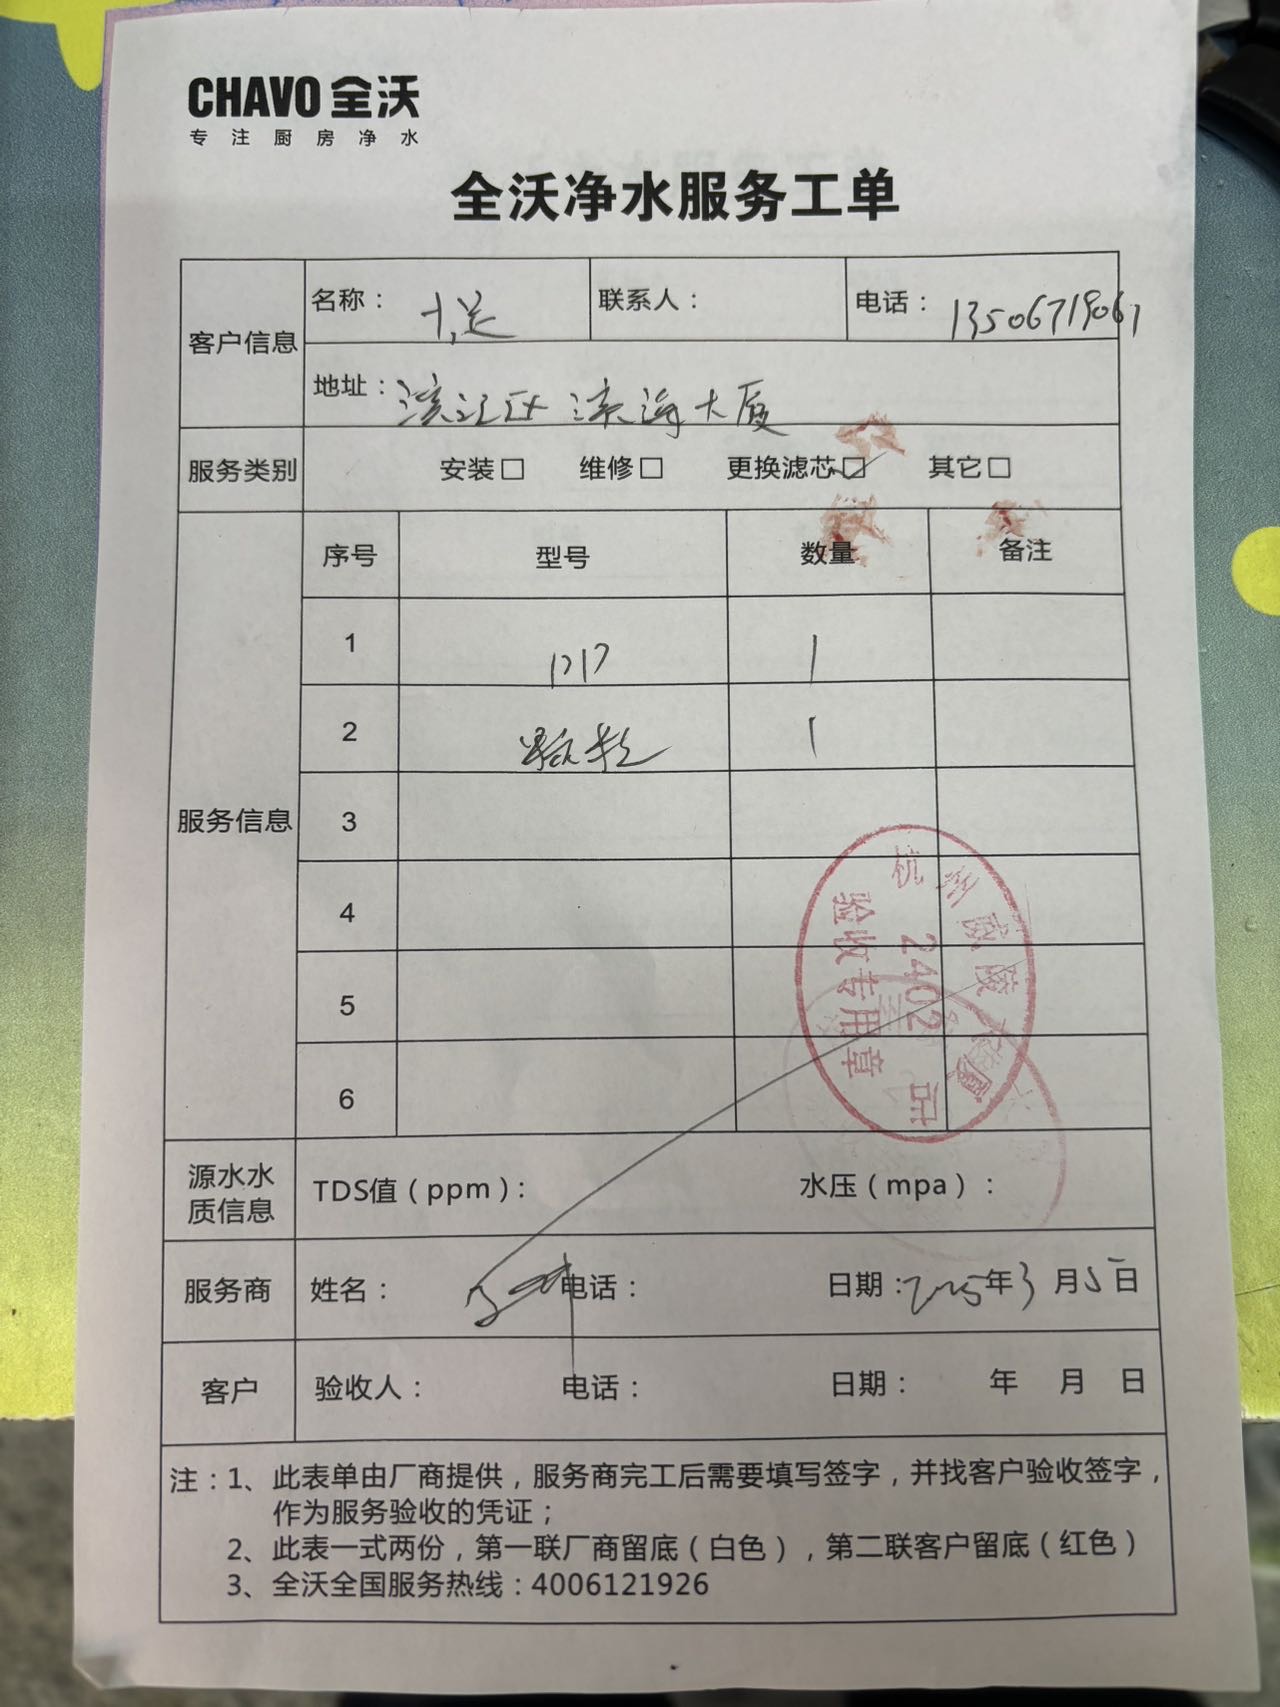 CHAVO 全沃
专注厨房净水
全沃净水服务工单
客户信息
名称：
联系人：
电话：13506719067
地址：滨江区 滨海大厦
服务类别 安装□ 维修□ 更换滤芯☑ 其它□
服务信息
序号 型号 数量 备注
1 PP 1
2 颗粒 1
3
4
5
6
杭州 大厦
2402
验收专用章
源水水质信息
TDS值（ppm）： 水压（mpa）：
服务商 姓名： 电话： 日期：2025年3月5日
客户 验收人： 电话： 日期： 年 月 日
注：1、此表单由厂商提供，服务商完工后需要填写签字，并找客户验收签字，
作为服务验收的凭证；
2、此表一式两份，第一联厂商留底（白色），第二联客户留底（红色）
3、全沃全国服务热线：4006121926